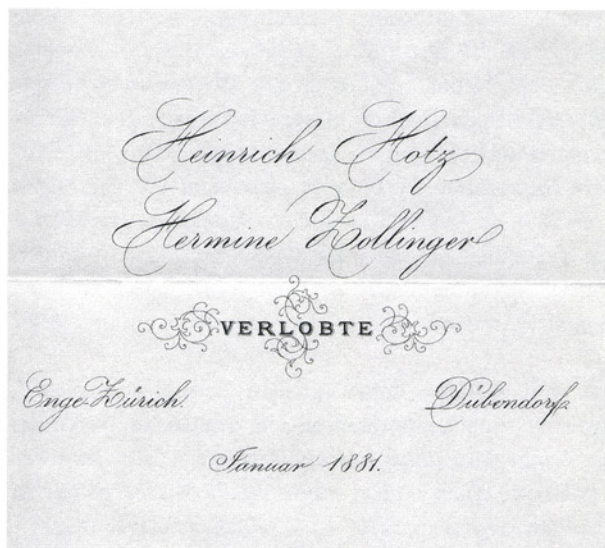 Heinrich Hotz
Hermine Zollinger
VERLOBTE
Enge-Zürich. Dübendorf.
Januar 1881.